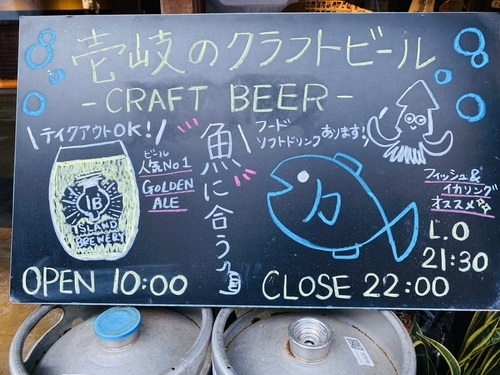 壱岐のクラフトビール
- CRAFT BEER -
\テイクアウトOK!/
ビール
人気No1
GOLDEN
ALE
IB
ISLAND
BREWERY
魚に合う
フード
ソフトドリンクあります!
フィッシュ&
イカリング
オススメ
L.O
21:30
OPEN 10:00
CLOSE 22:00